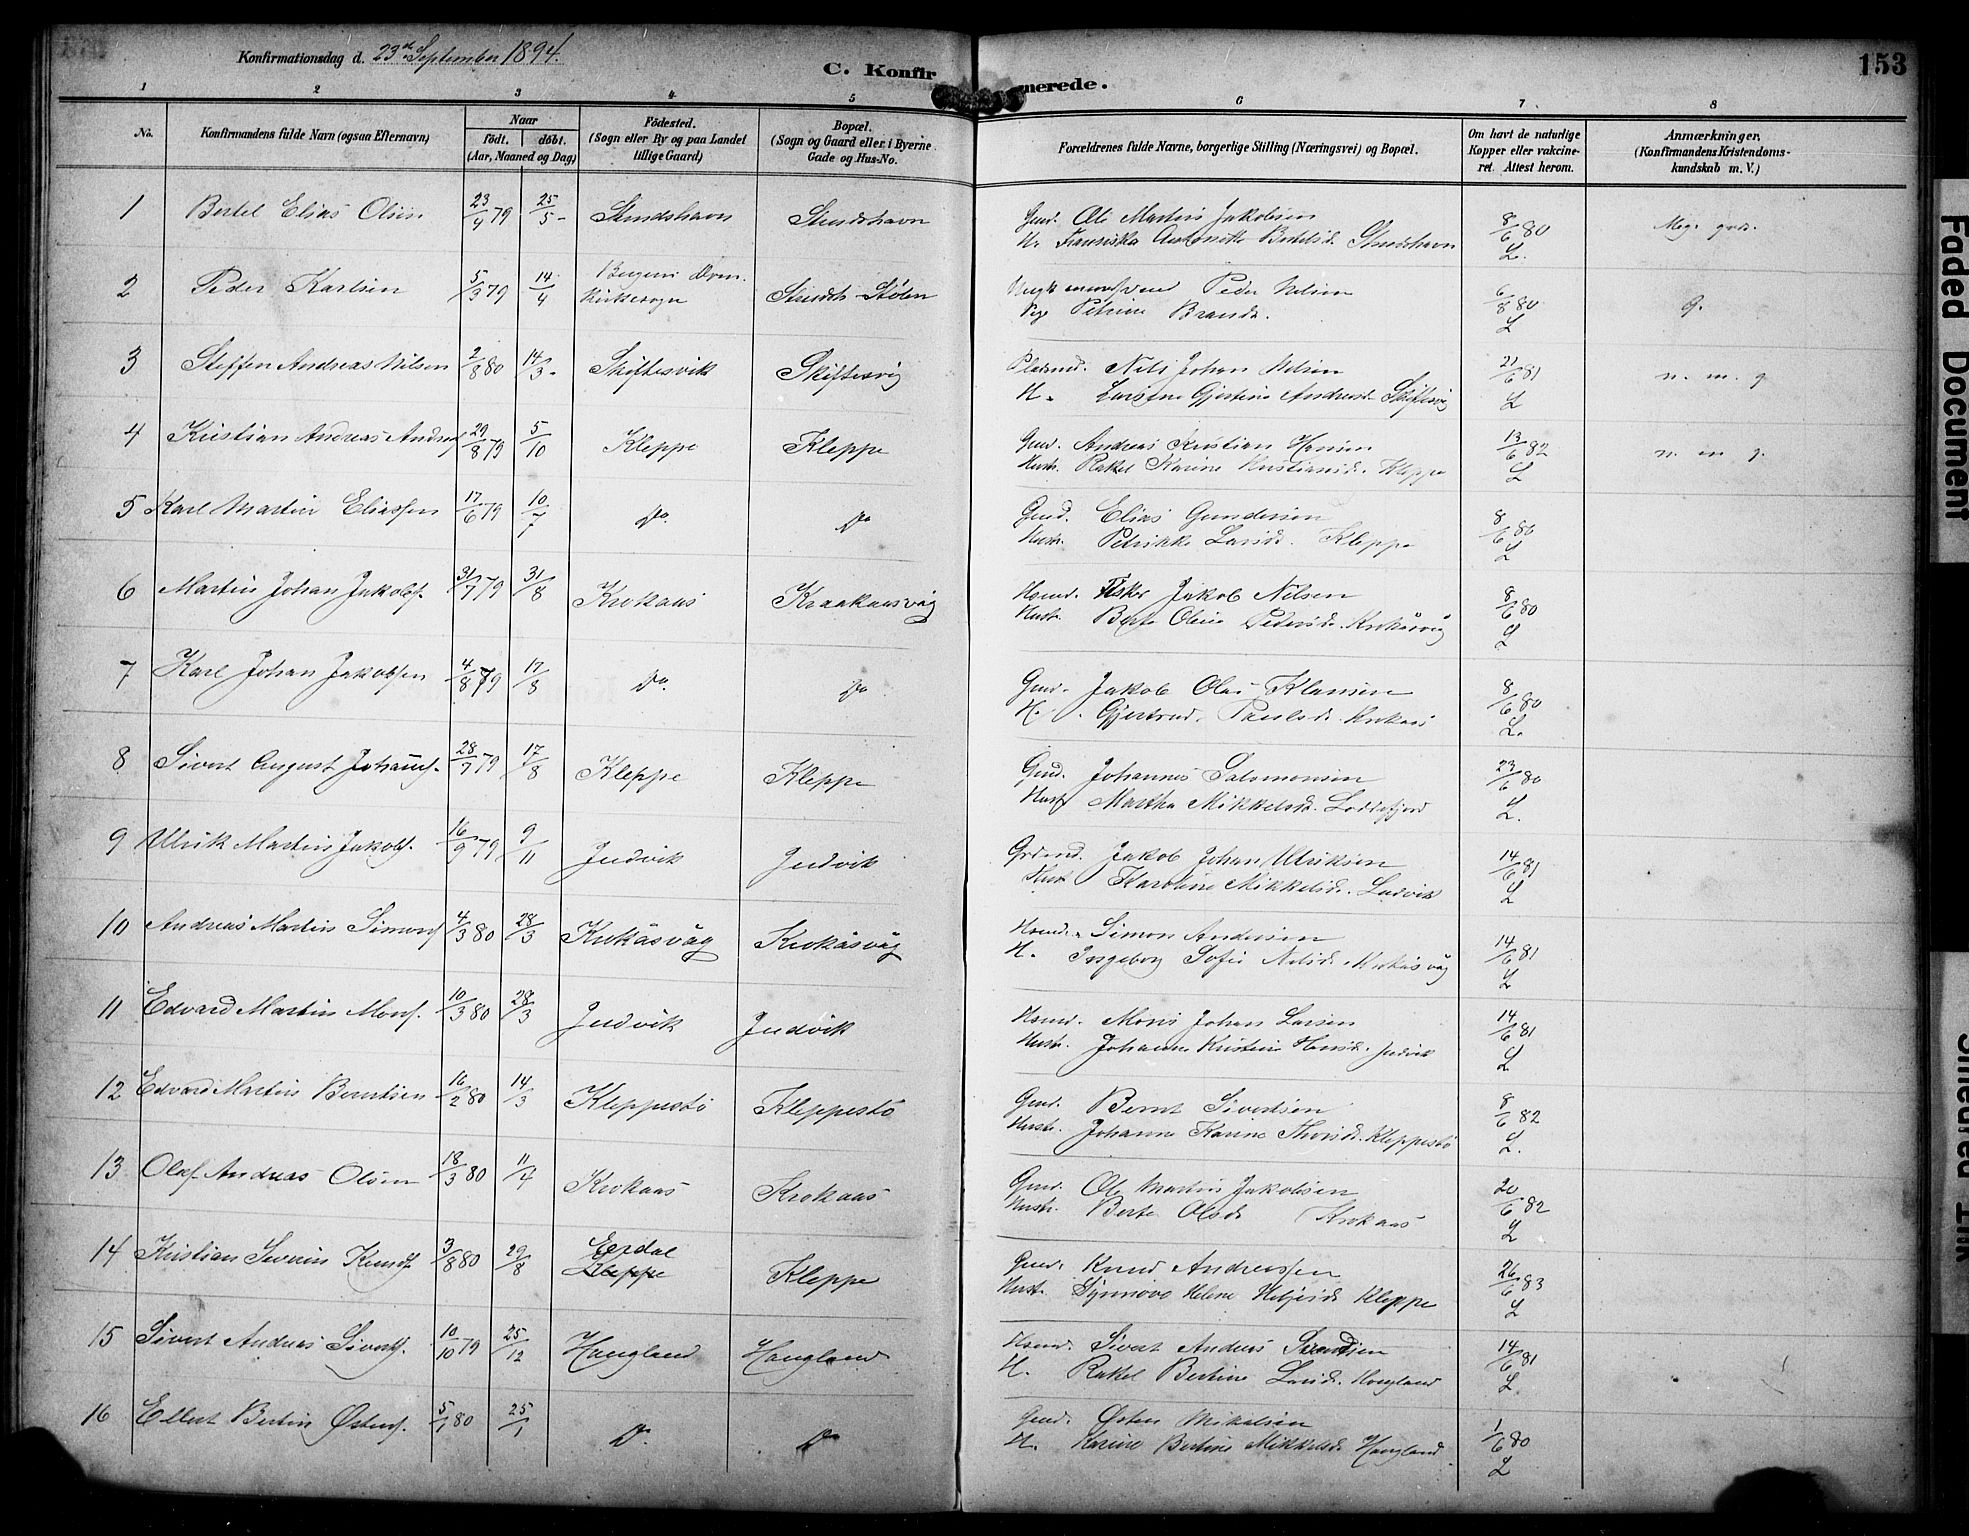 Konfirmationsdag d. 23de September 1894.
C. Konfirmerede.
153
1 2 3 4 5 6 7. 8
No.
Konfirmandens fulde Navn (ogsaa Efternavn)
Naar
födt. döbt.
(Aar, Maaned og Dag)
Födested.
(Sogn eller By og paa Landet
tillige Gaard)
Bopæl.
(Sogn og Gaard eller i Byerne
Gade og Hus-No.
Forældrenes fulde Navne, borgerlige Stilling (Næringsvei) og Bopæl.
Om havt de naturlige
Kopper eller vakcine-
ret. Attest herom.
Anmærkninger.
(Konfirmandens Kristendoms-
kundskab m. V.)
1 Bertel Elias Olsen 23/4 79 25/5 - Strudshavn Strudshavn Gmd. Ole Martin Jakobsen 8/6 80 Meg. god.
H. Fransiska Antonette Bertelsd. Strudshavn L.
2 Peder Karlsen 5/3 79 14/4 Bergens Dom- Peder Nilsen 6/8 80 g.
kirkesogn Pige Petrine Brands. L
3 Steffen Andreas Nilsen 2/8 80 14/3 - Skiftesvik Skiftesvig Pladsmd. Nils Johan Nilsen 21/6 81 n. m. g
H. Gjertine Andersd. Skiftesvig L
4 Kristian Andreas Andreas 29/8 79 5/10 Kleppe Kleppe Gmd. Andreas Kristian Hansen 13/6 82 n. m g.
Hustr. Rakel Karine Kristiansd. Kleppe L
5 Karl Martin Eliassen 17/6 79 10/7 Do Do Gmd. Elias Gundersen 8/6 80
Hustr. Petrikke Larsd. Kleppe L
6 Martin Johan Jakobs. 31/7 79 31/8 Krokaas Kraakaasvåg Husmd. Fisker Jakob Nilsen 8/6 80
Hustr. Berte Oline Pedersd. Krokåsvåg L
7 Karl Johan Jakobsen 4/8 79 17/8 Do Do Gmd. Jakob Olai Klausen 8/6 80
H. Gjertrud Paulsd. Krokaas L.
8 Sivert August Johanns. 28/7 79 17/8 Kleppe Kleppe Gmd. Johannes Salomonsen 23/6 80
Hustr Martha Mikkelsd. Loddefjord L.
9 Ulrik Martin Jakobs. 16/9 79 9/11 Judvik Judvik Grdmd. Jakob Johan Ulriksen 14/6 81
Hustr Karoline Mikkelsd. Ludvik L
10 Andreas Martin Simons 4/3 80 28/3 Krokåsvåg Krokåsvåg Husmd. Simon Andersen 14/6 81
H. Ingeborg Sofie Nilsd. Krokåsvåg L
11 Edvard Martin Mons. 10/3 80 28/3 Judvik Judvik Husmd. Mons Johan Larsen 14/6 81
Hustr. Johanne Kristine Hansd. Judvik L
12 Edvard Martin Berntsen 16/2 80 14/3 Kleppestö Kleppestö Gmd. Bernt Sivertsen 8/6 82
Hustr. Johanne Karine Thorsd. Kleppestö L.
13 Olaf Andreas Olsen 18/3 80 11/4 Krokaas Krokaas Gmd. Ole Martin Jakobsen 20/6 82
Hustr. Berte Olsd. Krokaas L
14 Kristian Severin Knuds 3/8 80 29/8 Erdal Kleppe Kleppe Gmd. Knud Andreassen 26/6 83
Hustr. Synnøve Helene Helgesd. Kleppe L
15 Sivert Andreas Siverts. 10/10 79 25/12 Haugland Haugland Husmd. Sivert Andreas 14/6 81
H. Rakel Bertine Larsd. Haugland L
16 Ellert Bertin Østens. 5/1 80 25/1 Do Do Gmd. Østen Mikalsen 1/6 80
H. Karine Bertine Mikkelsd. Haugland L
Faded Document
Smeared Ink